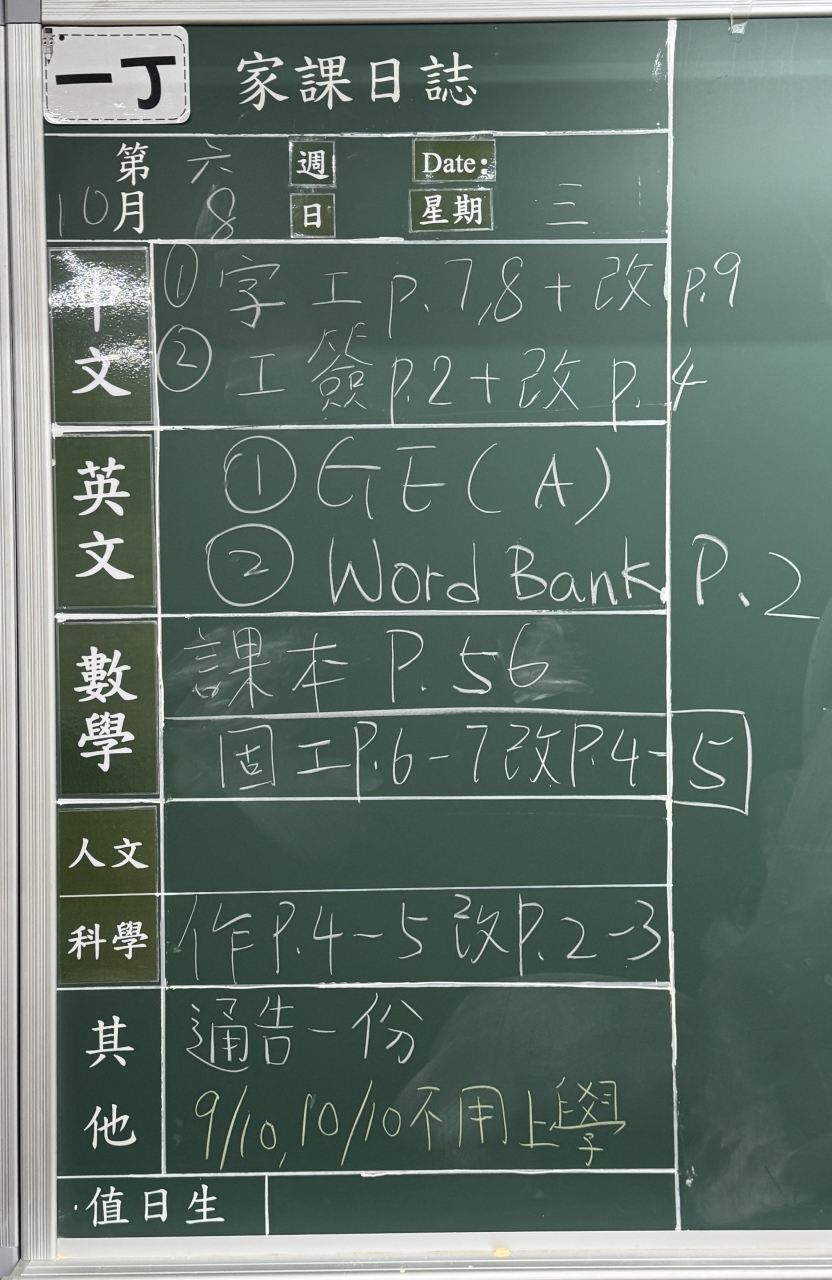 一丁 家課日誌
第 六 週 Date:
10月 8 日 星期 三
中文 ① 字工 p.7,8 + 改 p.9
② 工簽 p.2 + 改 p.4
英文 ① GE(A)
② Word Bank P.2
數學 課本 P.56
固工P.6-7改P.4-5
人文
科學 作P.4-5改P.2-3
其他 通告一份
9/10,10/10不用上學
值日生